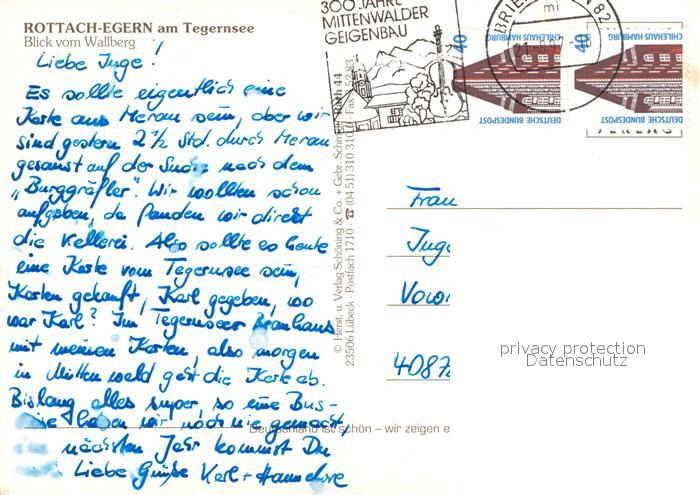 ROTTACH-EGERN am Tegernsee
Blick vom Wallberg
Liebe Inge!
Es sollte eigentlich eine
Karte aus Meran sein, aber wir
sind gestern 2 ½ Std. durch Meran
gesaust auf der Suche nach dem
„Burggräfler". Wir wollten schon
aufgeben, da fanden wir direkt
die Kellerei. Also sollte es heute
eine Karte vom Tegernsee sein,
Karten gekauft, Karl gegeben, wo
war Karl? Im Tegernseer Brauhaus
mit meinen Karten, also morgen
in Mittenwald geht die Karte ab.
Bislang alles super, so eine Bus-
haben wir noch nie gemacht,
nächsten Jahr kommst Du
Liebe Grüße Karl + Hannelore
© Herst. u. Verlag Schöning & Co. + Gebr. Schmidt
23506 Lübeck · Postfach 1710 · ☎ (04 51) 310 310
300 JAHRE
MITTENWALDER
GEIGENBAU
mi
82
40
CHILEHAUS HAMBURG
DEUTSCHE BUNDESPOST
40
CHILEHAUS HAMBURG
DEUTSCHE BUNDESPOST
Frau
Inge
4087
privacy protection
Datenschutz
Deutschland ist schön – wir zeigen e